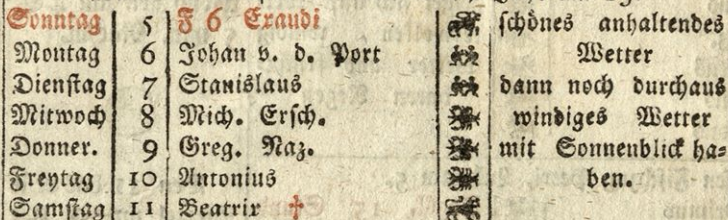 Sonntag 5 F 6 Exaudi schönes anhaltendes
Montag 6 Johan v. d. Port Wetter
Dienstag 7 Stanislaus dann noch durchaus
Mitwoch 8 Mich. Ersch. windiges Wetter
Donner. 9 Greg. Naz. mit Sonnenblick ha-
Freytag 10 Antonius ben.
Samstag 11 Beatrix †